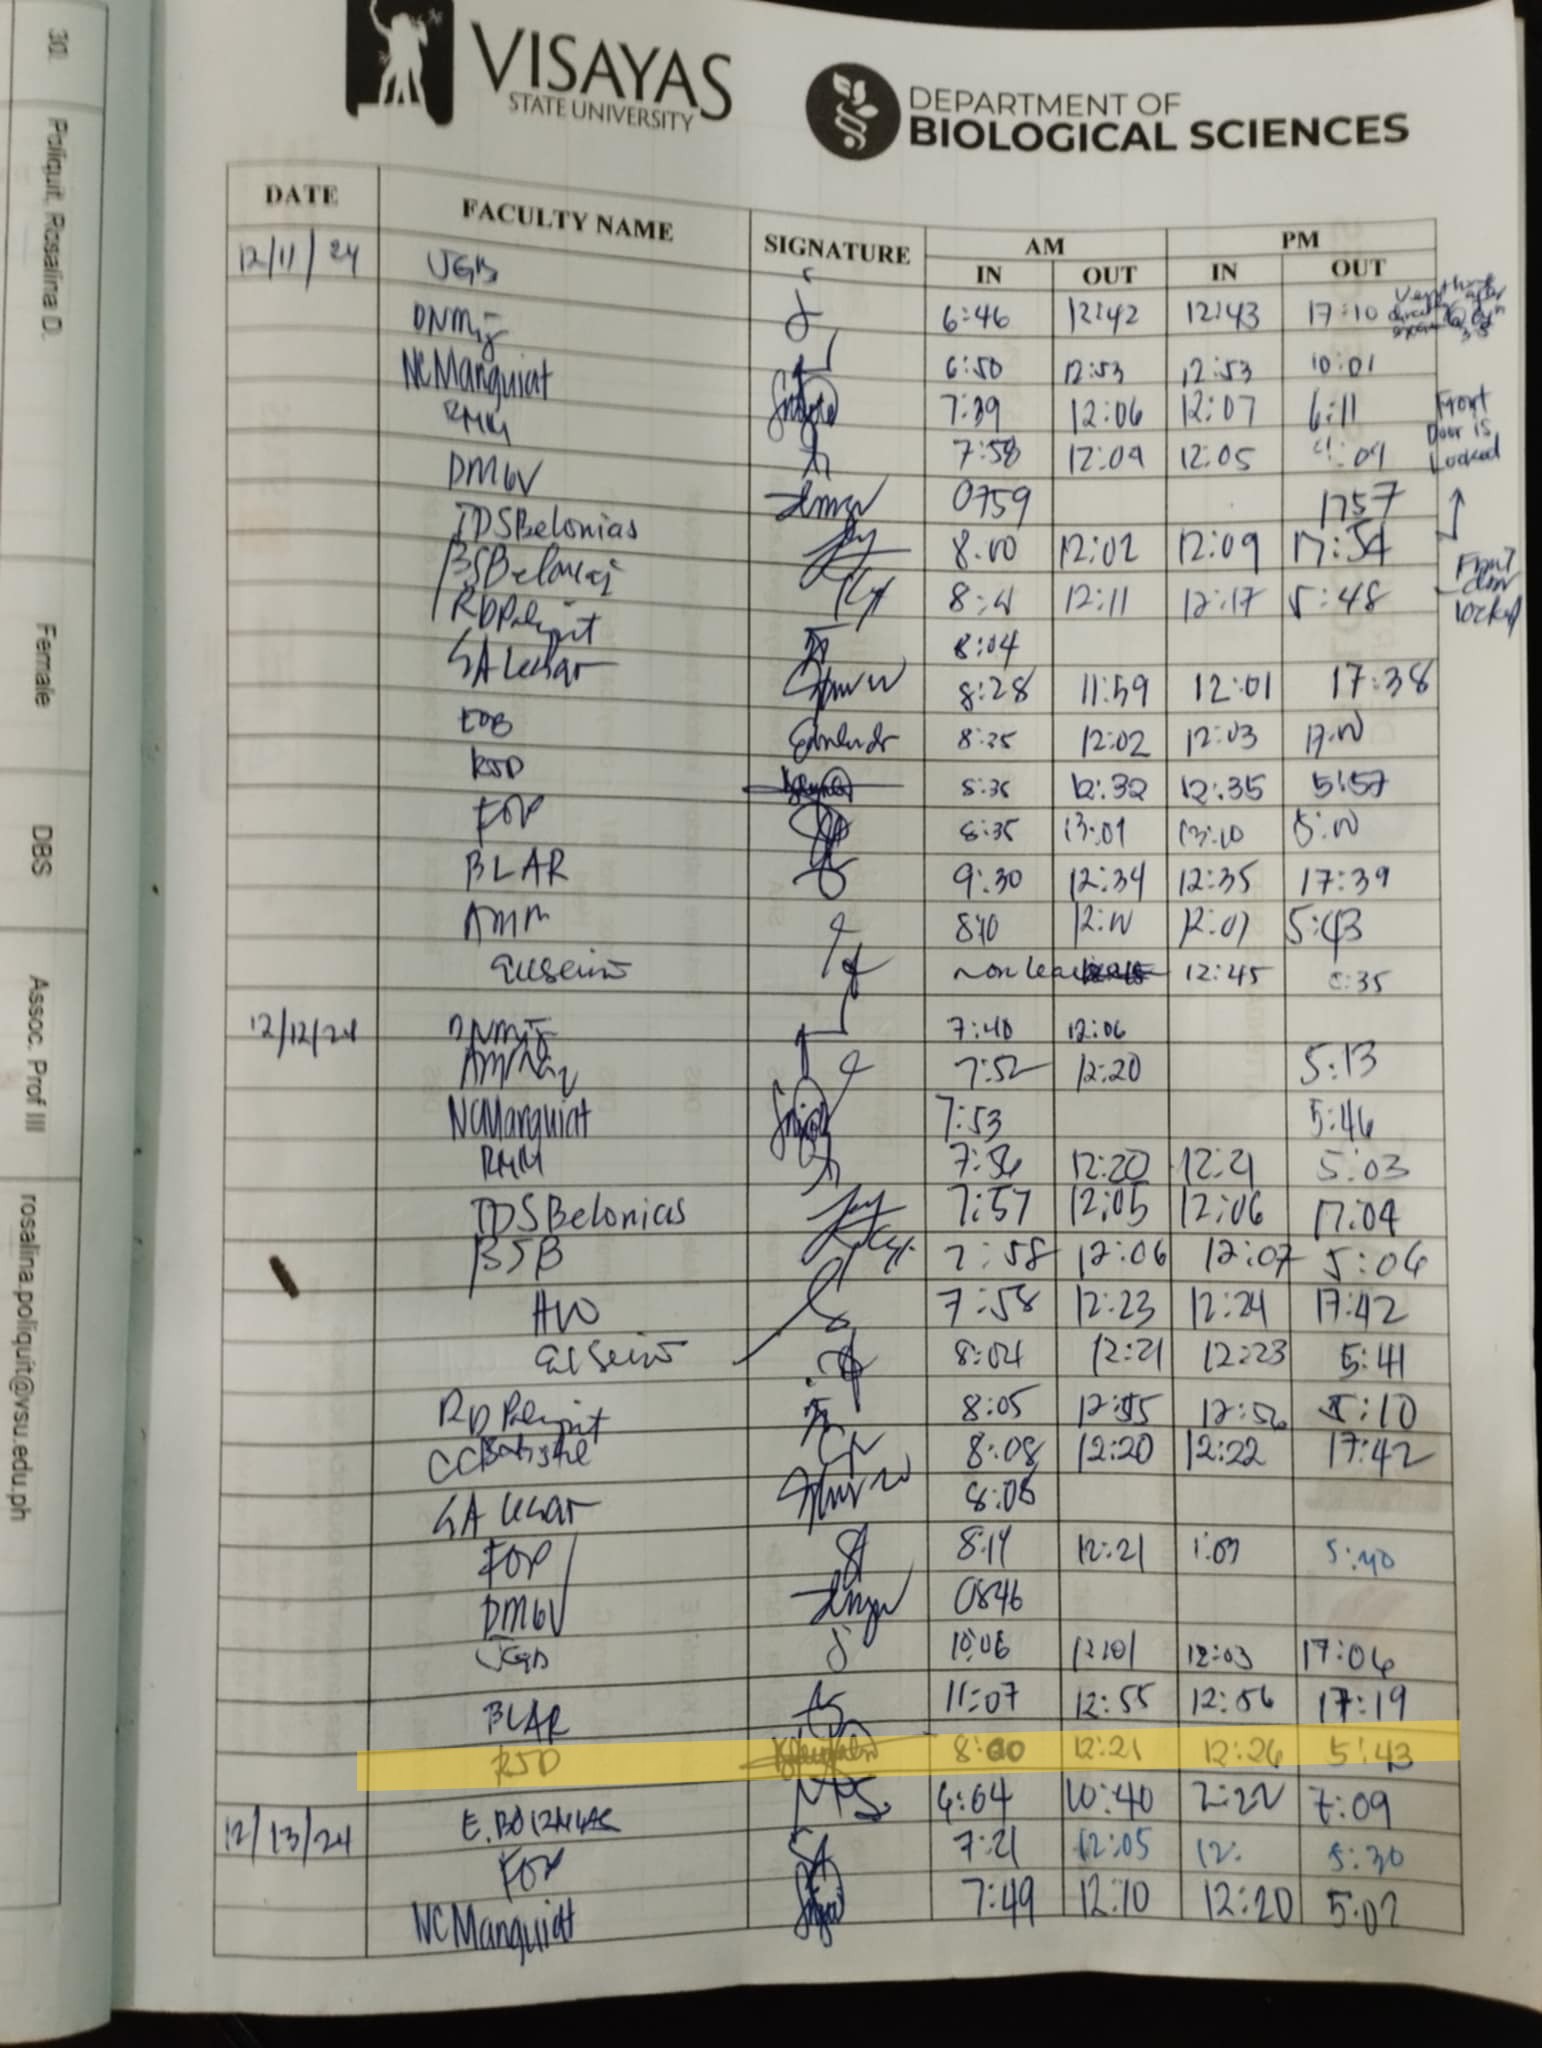 30. Poliquit, Rosalina D. Female DBS Assoc. Prof III rosalina.poliquit@vsu.edu.ph
VISAYAS
STATE UNIVERSITY
DEPARTMENT OF
BIOLOGICAL SCIENCES
DATE FACULTY NAME SIGNATURE AM PM
IN OUT IN OUT
12/11/24 JGB 6:46 12:42 12:43 17:10
6:50 12:53 12:53 10:01
NCManguiat 7:39 12:06 12:07 6:11
Front
Door is
Locked
RMM 7:58 12:09 12:05
DMGV 0759 1757
TDSBelonias 8:00 12:02 12:09 17:54
BSBelonias 12:11 12:17 5:48
Front
door
locked
RDPoliquit 8:04
8:28 11:59 12:01 17:38
EOB 8:25 12:02 12:03 17:00
RSD 8:35 12:32 12:35 5:57
FOP 8:35 13:09 13:10 5:00
BLAR 9:30 12:34 12:35 17:39
AMM 12:00 12:01 5:43
12:45
12/12/24 7:40 12:06
7:52 12:20 5:13
NCManguiat 7:53 5:46
RMM 7:56 12:20 12:21 5:03
TDSBelonias 7:57 12:05 12:06 17:04
BSB 7:58 12:06 12:07 5:06
7:58 12:23 12:24 17:42
8:04 12:21 12:23 5:41
RDPoliquit 8:05 12:55 12:56 5:10
8:08 12:20 12:22 17:42
8:08
FOP 8:14 12:21 1:09 5:40
DMGV 0846
JGB 10:06 1201 12:03 17:06
BLAR 11:07 12:55 12:56 17:19
RSD 8:00 12:21 12:26 5:43
12/13/24 10:40 2:22 7:09
FOP 7:21 12:05 12: 5:30
NCManguiat 7:49 12:10 12:20 5:02